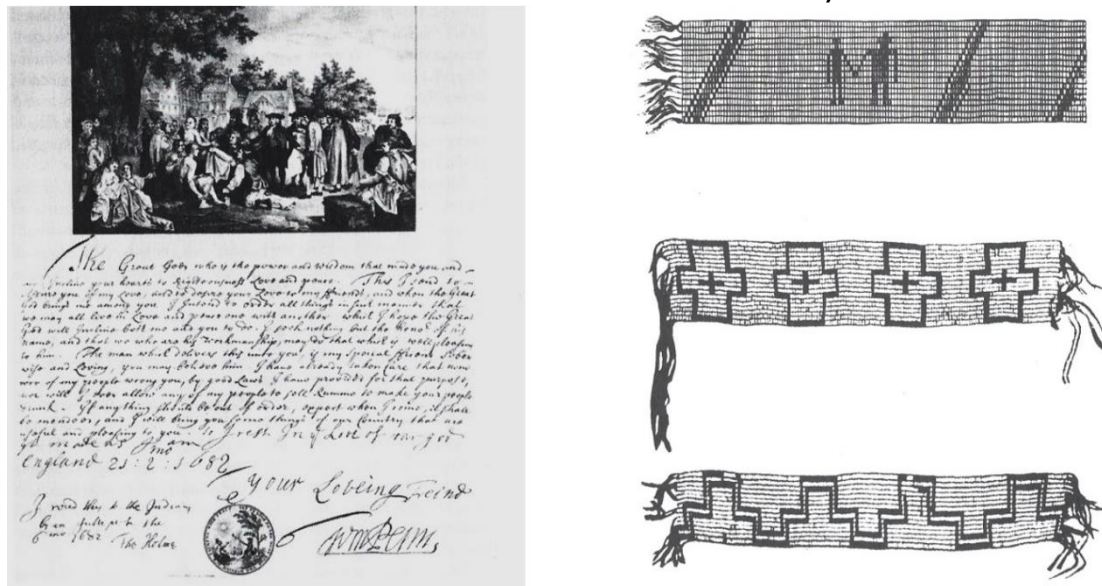 The Great God who is the power and wisdom that made you and
me Incline your hearts to Righteousness Love and peace. This I send to
Assure you of my Love, and to desire your Love to my friends, and when the Great
God brings me among you I Intend to order all things in manner that
we may all live in Love and peace one with another which I hope the Great
God will Incline both me and you to do. I seek nothing but the honor of his
name, and that we who are his workmanship, may do that which is well pleasing
to him. The man which delivers this unto you, is my Special friend Sober
wise and Loving, you may believe him. I have already taken Care that none
of my people wrong you, by good Laws I have provided for that purpose,
nor will I ever allow any of my people to sell Rumme to make your people
Drunk. If anything should be out of order, expect when I come, it shall
be mended, and I will bring you some things of our Country that are
useful and pleasing to you. So I rest In ye Love of our god
yt made us I am
England 21 : 2 : 1682
Your Loveing Freind
I read this to the Indians
by an Interpreter the
6 mo 1682 Tho Holme
Wm Penn